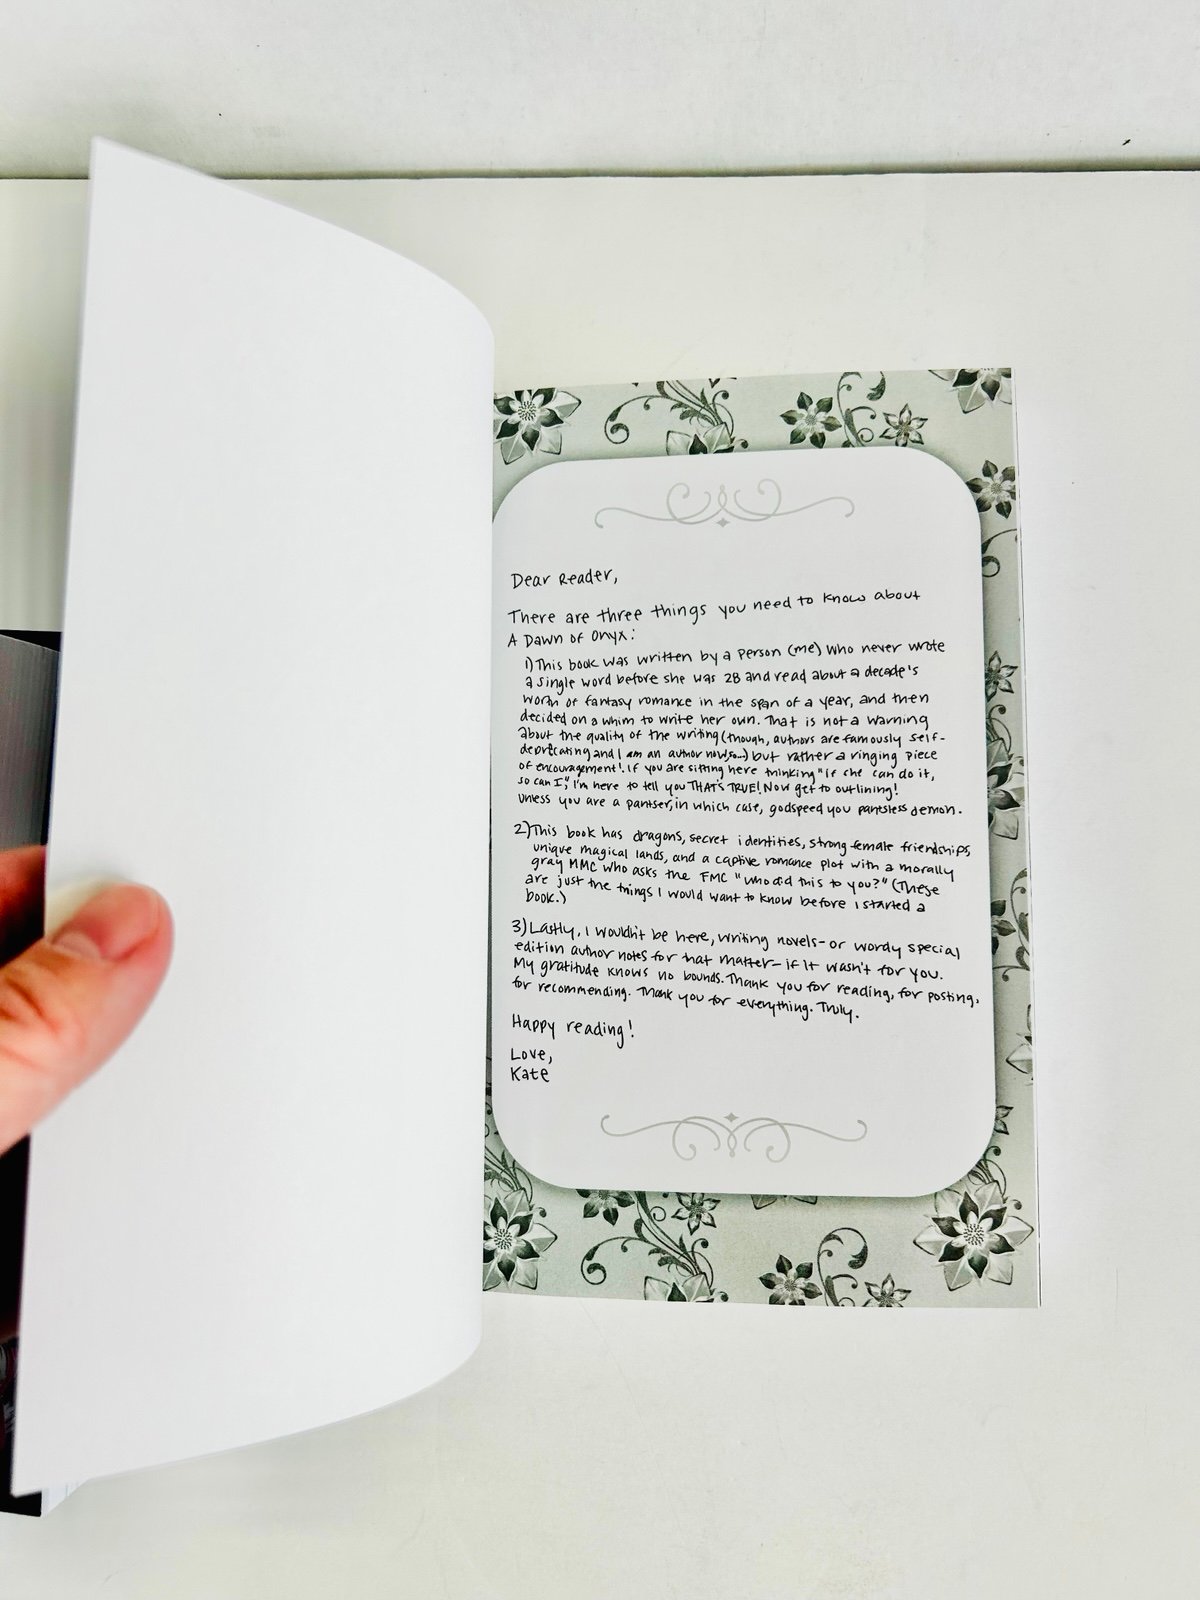 Dear Reader,
There are three things you need to know about
A Dawn of Onyx:
1) This book was written by a person (me) who never wrote
a single word before she was 28 and read about a decade's
worth of fantasy romance in the span of a year, and then
decided on a whim to write her own. That is not a warning
about the quality of the writing (though, authors are famously self-
deprecating and I am an author now, so...) but rather a ringing piece
of encouragement! If you are sitting here thinking "if she can do it,
so can I," I'm here to tell you THAT'S TRUE! Now get to outlining!
Unless you are a pantser, in which case, godspeed you pantsless demon.
2) This book has dragons, secret identities, strong female friendships,
unique magical lands, and a captive romance plot with a morally
gray MMC who asks the FMC "who did this to you?" (These
are just the things I would want to know before I started a
book.)
3) Lastly, I wouldn't be here, writing novels- or wordy special
edition author notes for that matter- if it wasn't for you.
My gratitude knows no bounds. Thank you for reading, for posting,
for recommending. Thank you for everything. Truly.
Happy reading!
Love,
Kate